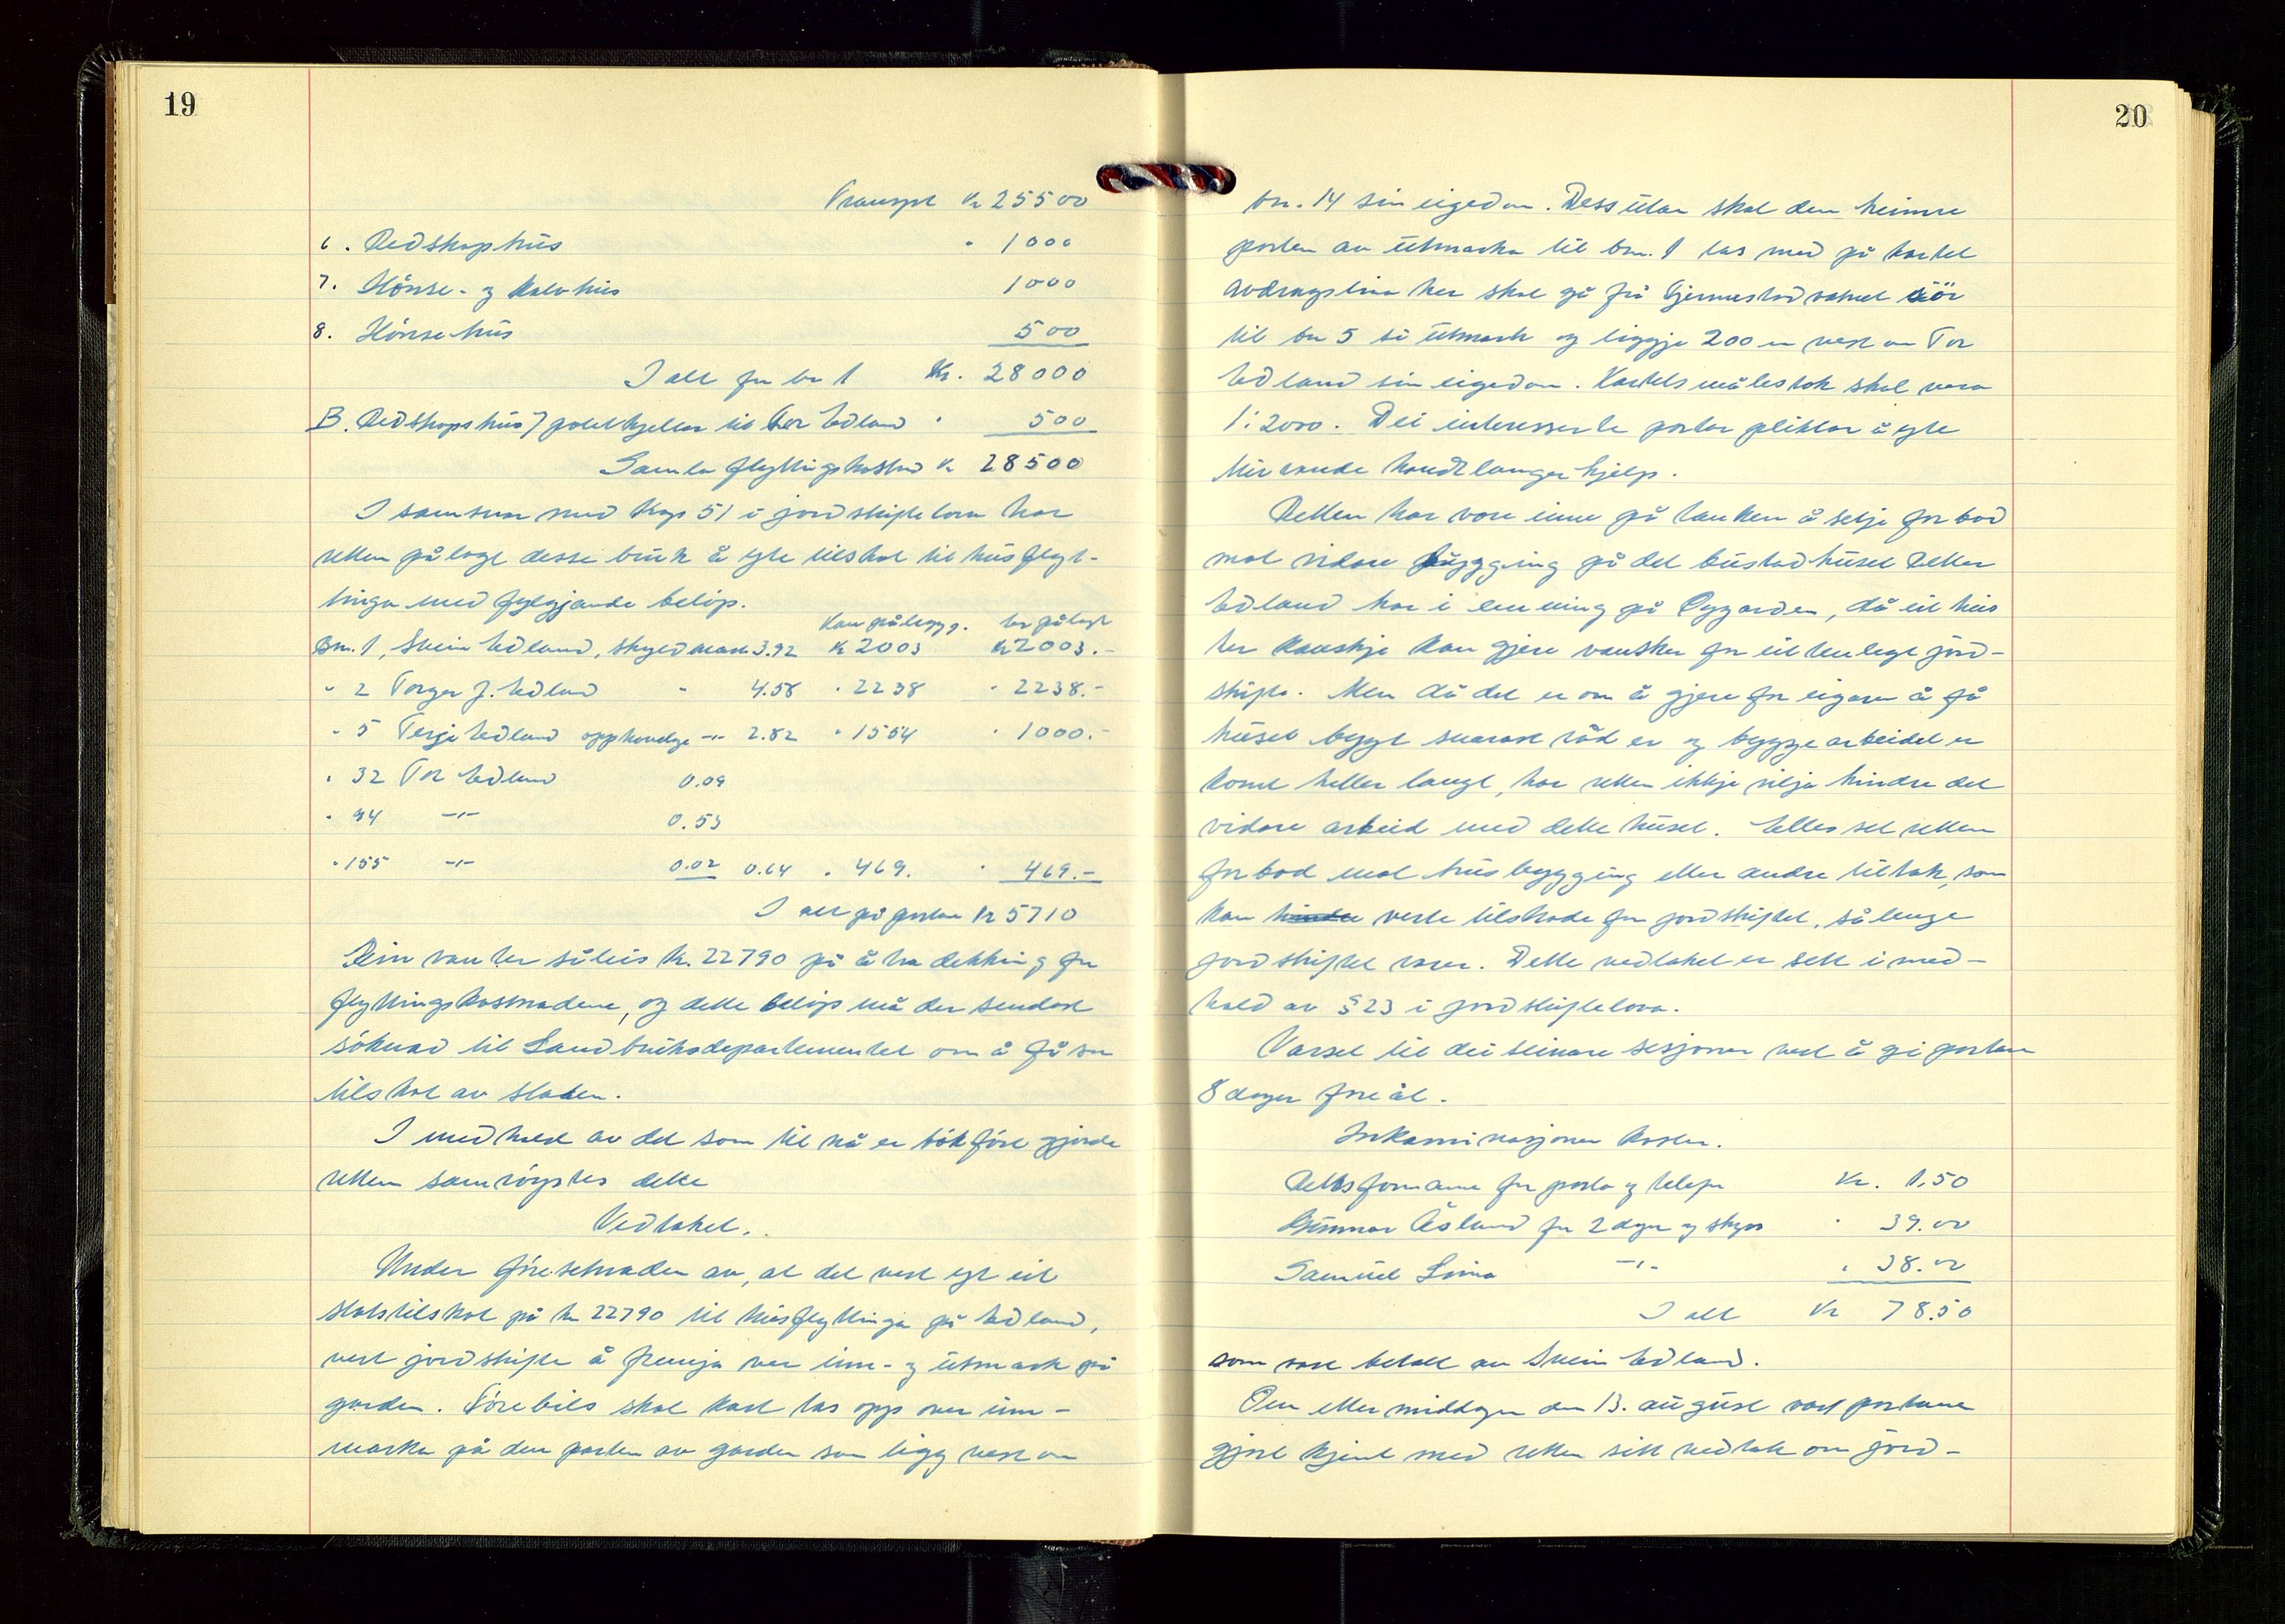 19
Transport Kr 25500
6. Redskaphus " 1000
7. Hönse- og kalvhus 1000
8. Hönsehus 500
I alt for bn 1 Kr. 28000
B. Redskapshus / potetkjellar til Tor Edland " 500
Samla flyttingskostnad Kr 28500
I samsvar med kap 51 i jordskiftelova har
retten pålagt desse bruk å yte tilskot til husflyt-
tinga med fylgjande beløp.
Kan pålegg. er pålagt
Bn. 1, Svein Edland, skyldmark 3.92 Kr 2003 Kr 2003.-
" 2 Torger J. Edland " 4.58 " 2238 " 2238.-
" 5 Terje Edland -"- 2.82 " 1554 " 1000.-
" 32 Tor Edland 0.09
" 94 -"- 0.53
" 155 -"- 0.02 0.64 " 469. " 469.-
I alt på partane Kr 5710
Ein vantar såleis kr. 22790 på å ha dekking for
flyttingskostnadene, og dette beløp må der sendast
söknad til Landbruksdepartementet om å få som
tilskot av staten.
I medhald av det som til nå er bokfört gjorde
retten samröystes dette
Vedtaket.
Under föresetnaden av, at det vert yt eit
statstilskot på kr 22790 til husflyttinga på Edland,
vert jordskifte å fremja over inn- og utmark på
garden. Förebils skal kart tas opp over inn-
marka på den parten av garden som ligg vest om
20
bn. 14 sin eigedom. Dessutan skal den heimre
parten av utmarka til bn. 1 tas med på kartet
avdragslina her skal gå frå Gjermestadvatnet sör
til bn 5 si utmark og liggje 200 m vest om Tor
Edland sin eigedom. Kartets målestok skal vera
1:2000. Dei interesserte partar pliktar å yte
turvande handlangarhjelp.
Retten har vore inne på tanken å setje forbod
mot vidare bygging på det bustadhuset Petter
Edland har i emning på Øygarden, då eit hus
her kanskje kan gjere vansker for eit tenlegt jord-
skifte. Men då det er om å gjere for eigaren å få
huset bygt snarast råd er og byggearbeidet er
komt heller langt, har retten ikkje vilja hindre det
vidare arbeid med dette huset. Elles set retten
forbod mot husbygging eller andre tiltak, som
kan hindre verte tilskade for jordskiftet, så lenge
jordskiftet varer. Dette vedtaket er sett i med-
hald av § 23 i jordskiftelova.
Varsel til dei seinare sesjonar vert å gi partane
8 dagar föreåt.
Inkaminasjonen kostar.
Rettsformann for porto og telefon Kr. 1.50
Gunnar Åsland for 2 dagar og skyss " 39.00
Samuel Lima -"- " 38.00
I alt Kr 78.50
som vart betalt av Svein Edland.
Om ettermiddagen den 13. august vart partane
gjort kjent med retten sitt vedtak om jord-